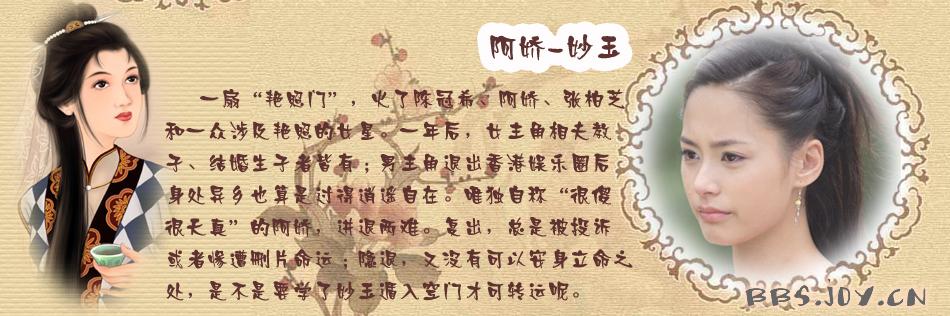 阿娇-妙玉
一扇“艳照门”，火了陈冠希、阿娇、张柏芝
和一众涉及艳照的女星。一年后，女主角相夫教
子、结婚生子者皆有；男主角退出香港娱乐圈后
身处异乡也算是过得逍遥自在。唯独自称“很傻
很天真”的阿娇，进退两难。复出，总是被投诉
或者惨遭删片命运；隐退，又没有可以安身立命之
处，是不是要学了妙玉遁入空门才可转运呢。
BBS.JOY.CN